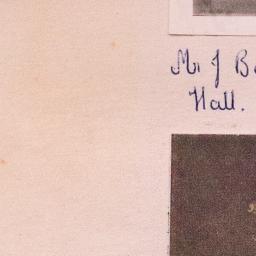 Mr J B
Hall.